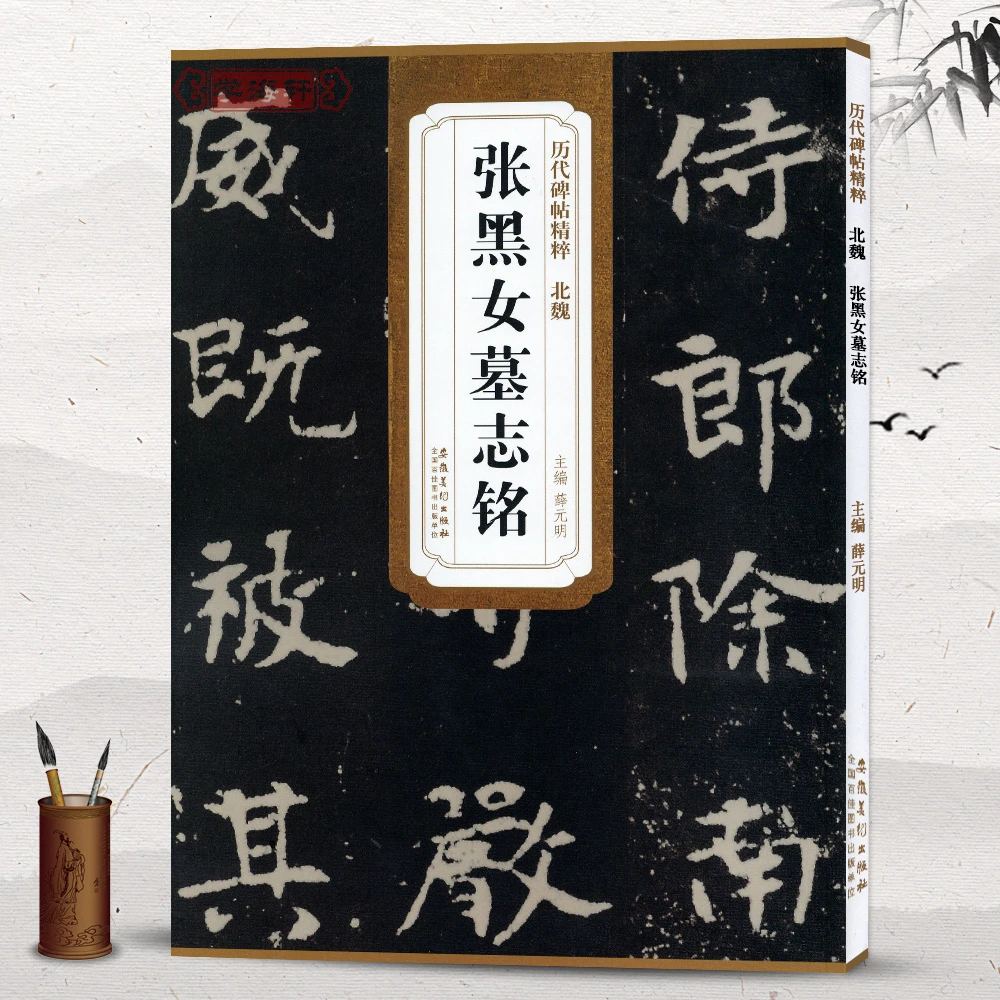 学海轩
历代碑帖精粹 北魏
张黑女墓志铭
主编 薛元明
安徽美术出版社
全国百佳图书出版单位
侍郎除南
嚴
威既被其
历代碑帖精粹 北魏 张黑女墓志铭
主编 薛元明
安徽美术出版社
全国百佳图书出版单位